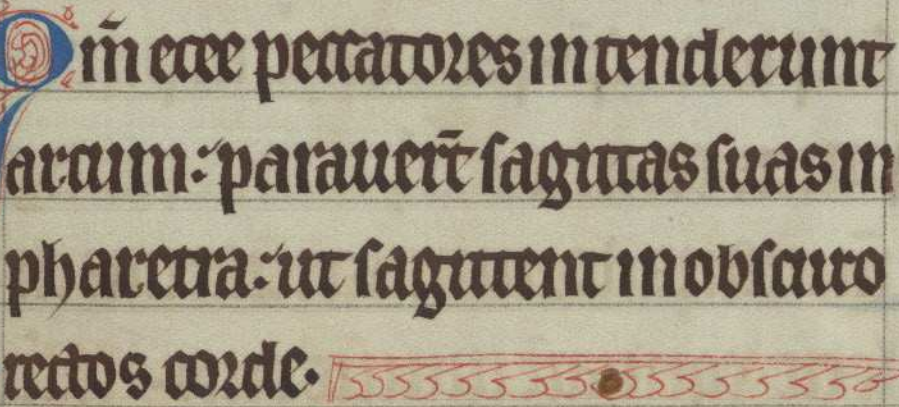 Qm̄ ecce peccatores intenderunt
arcum: parauer̄t sagittas suas in
pharetra: ut sagittent in obscuro
rectos corde.